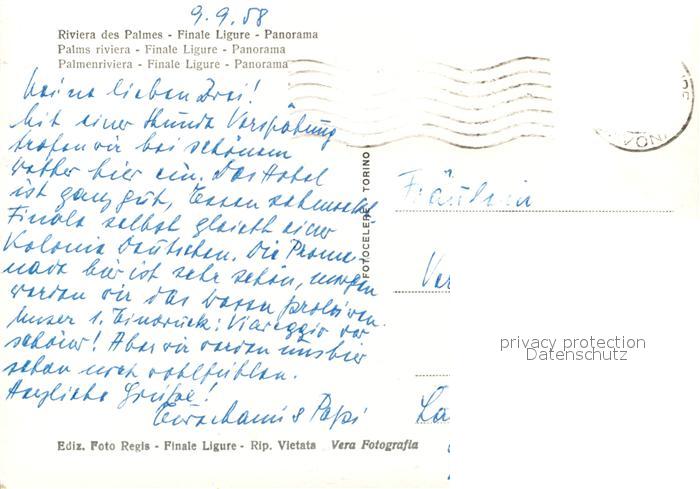 9.9.58
Riviera des Palmes - Finale Ligure - Panorama
Palms riviera - Finale Ligure - Panorama
Palmenriviera - Finale Ligure - Panorama
Meine lieben Drei!
Mit einer Stunde Verspätung
trafen wir bei schönem
Wetter hier ein. Das Hotel
ist ganz gut, Essen
Finale selbst gleicht einer
Kolonie Deutschen. Die Prome-
nade hier ist sehr schön, morgen
werden wir das Wasser probieren.
Unser 1. Eindruck: Viareggio war
schöner! Aber wir werden uns hier
schon noch wohlfühlen.
Herzliche Grüße!
Eure Mami & Papi
FOTOCELERE TORINO
Fräulein
Ver
La
privacy protection
Datenschutz
Ediz. Foto Regis - Finale Ligure - Rip. Vietata Vera Fotografia